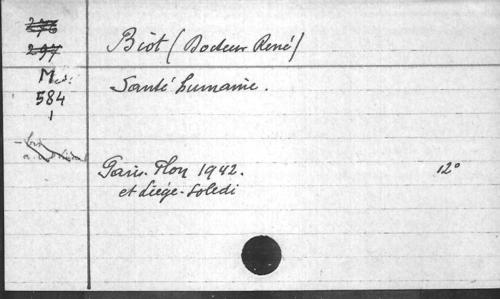 276
297
Med:
584
1
Biot (Docteur René)
Santé humaine.
Paris. Plon 1942. 12°
et Liége. Soledi